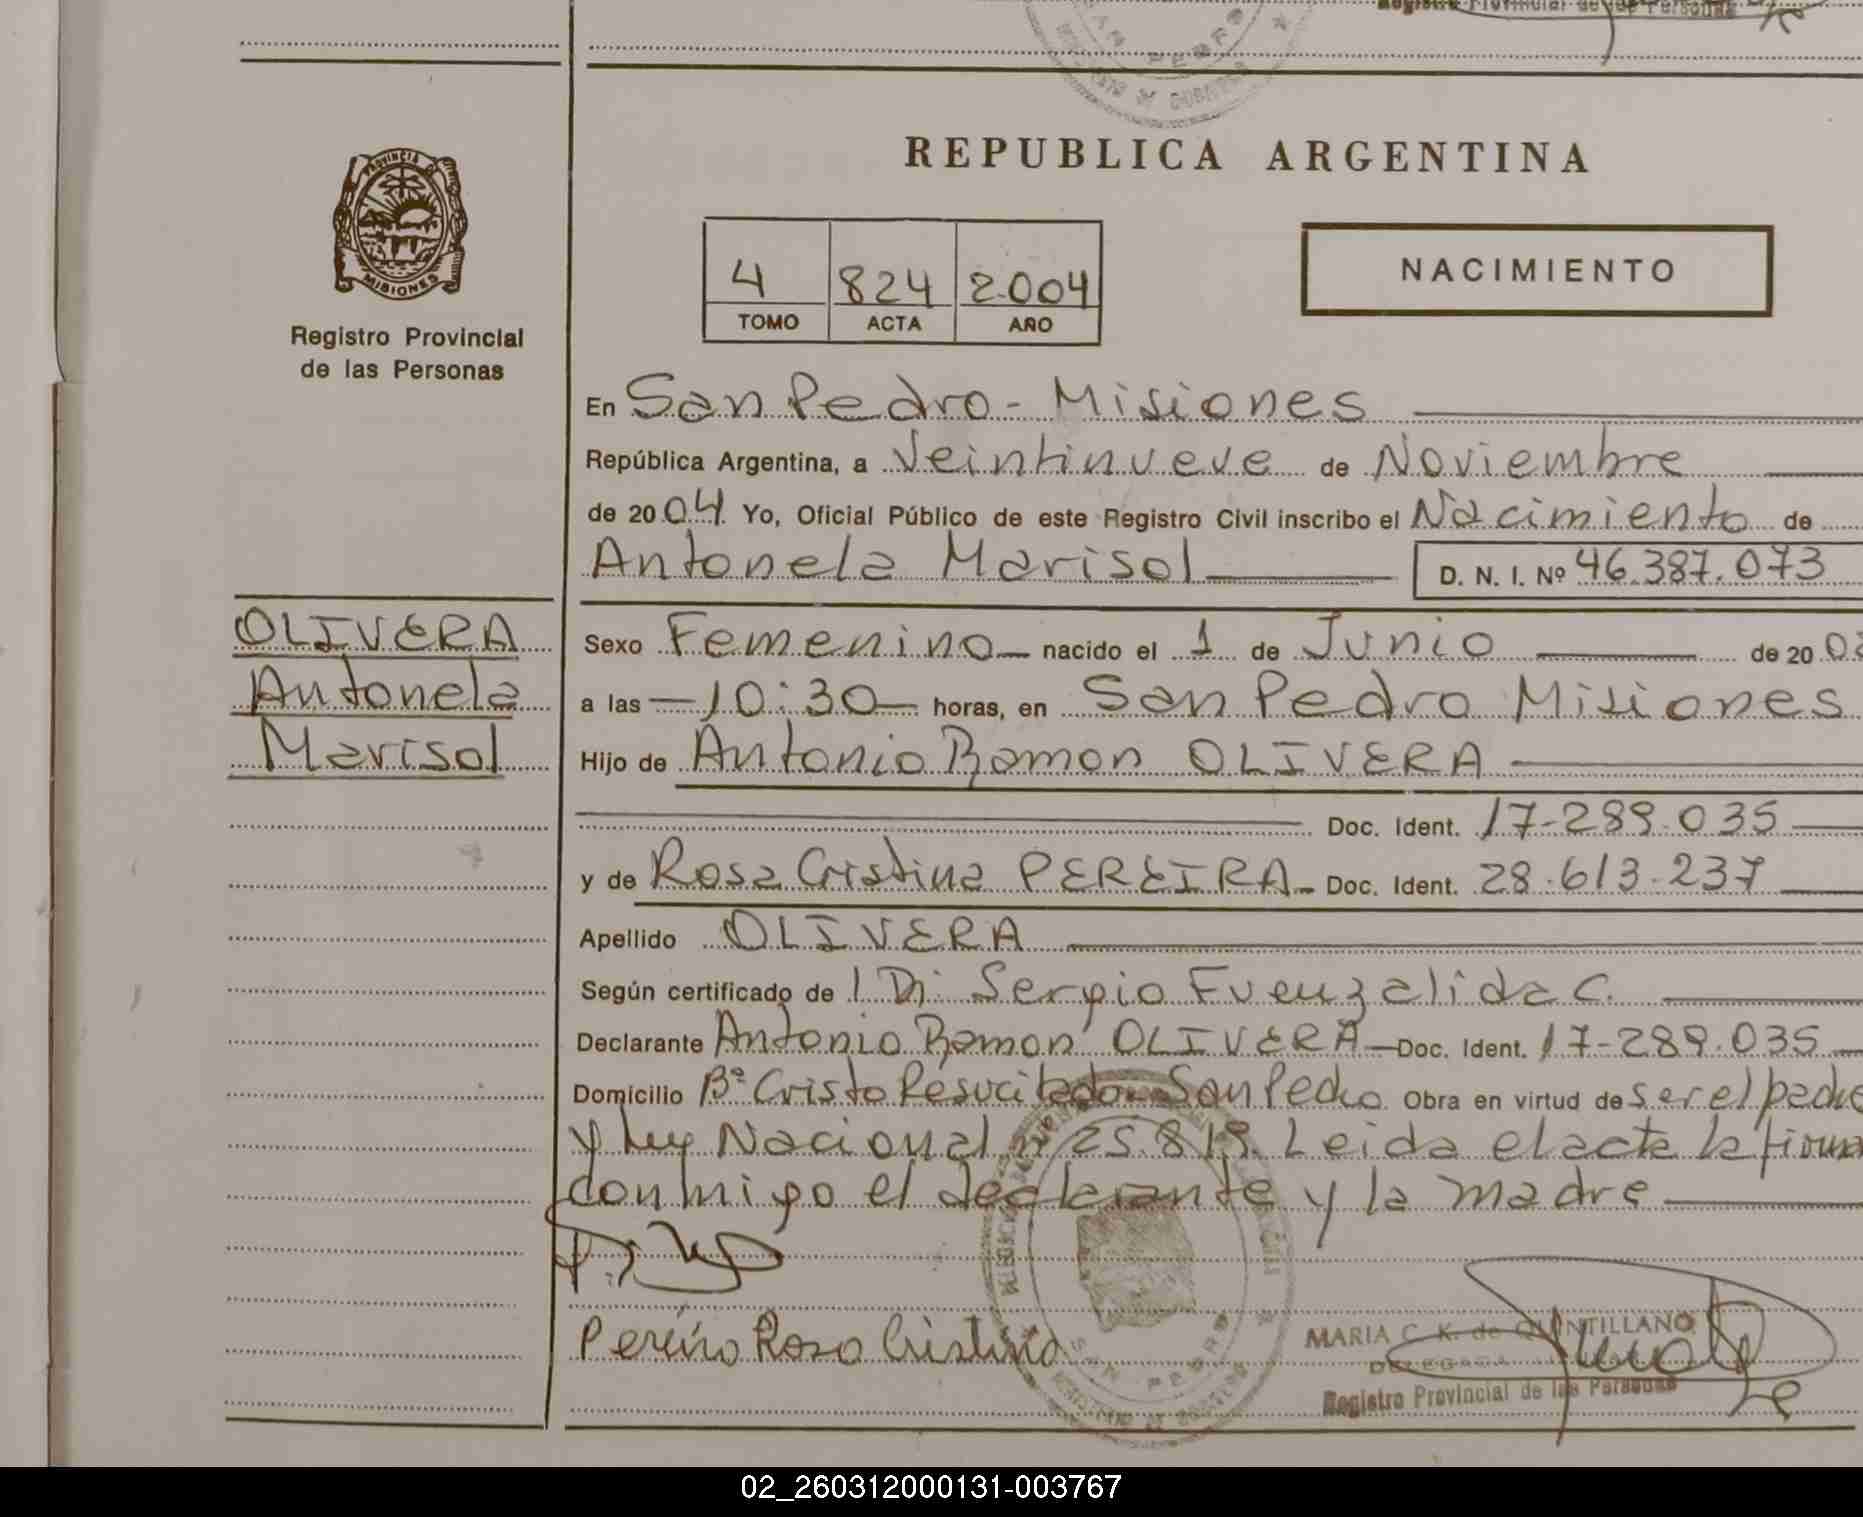 Registro Provincial de las Personas
SAN PEDRO
REPUBLICA ARGENTINA
PROVINCIA DE
MISIONES
Registro Provincial
de las Personas
4 824 2.004
TOMO ACTA AÑO
NACIMIENTO
En San Pedro - Misiones
República Argentina, a Veintinueve de Noviembre
de 2004 Yo, Oficial Público de este Registro Civil inscribo el Nacimiento de
Antonela Marisol D. N. I. Nº 46.387.073
OLIVERA
Antonela
Marisol
Sexo Femenino nacido el 1 de Junio de 20 0
a las 10:30 horas, en San Pedro Misiones
Hijo de Antonio Ramon OLIVERA
Doc. Ident. 17-289.035
y de Rosa Cristina PEREIRA Doc. Ident. 28.613.237
Apellido OLIVERA
Según certificado de Sergio Fuenzalida C.
Declarante Antonio Ramon OLIVERA Doc. Ident. 17-289.035
Domicilio Bº Cristo Resucitado San Pedro Obra en virtud de ser el padre
y Ley Nacional nº 25.819. Leida el acta la firma
conmigo el declarante y la madre
Pereira Rosa Cristina
SAN PEDRO
MARIA C. K. de QUINTILLANO
DELEGADA
Registro Provincial de las Personas
02_260312000131-003767